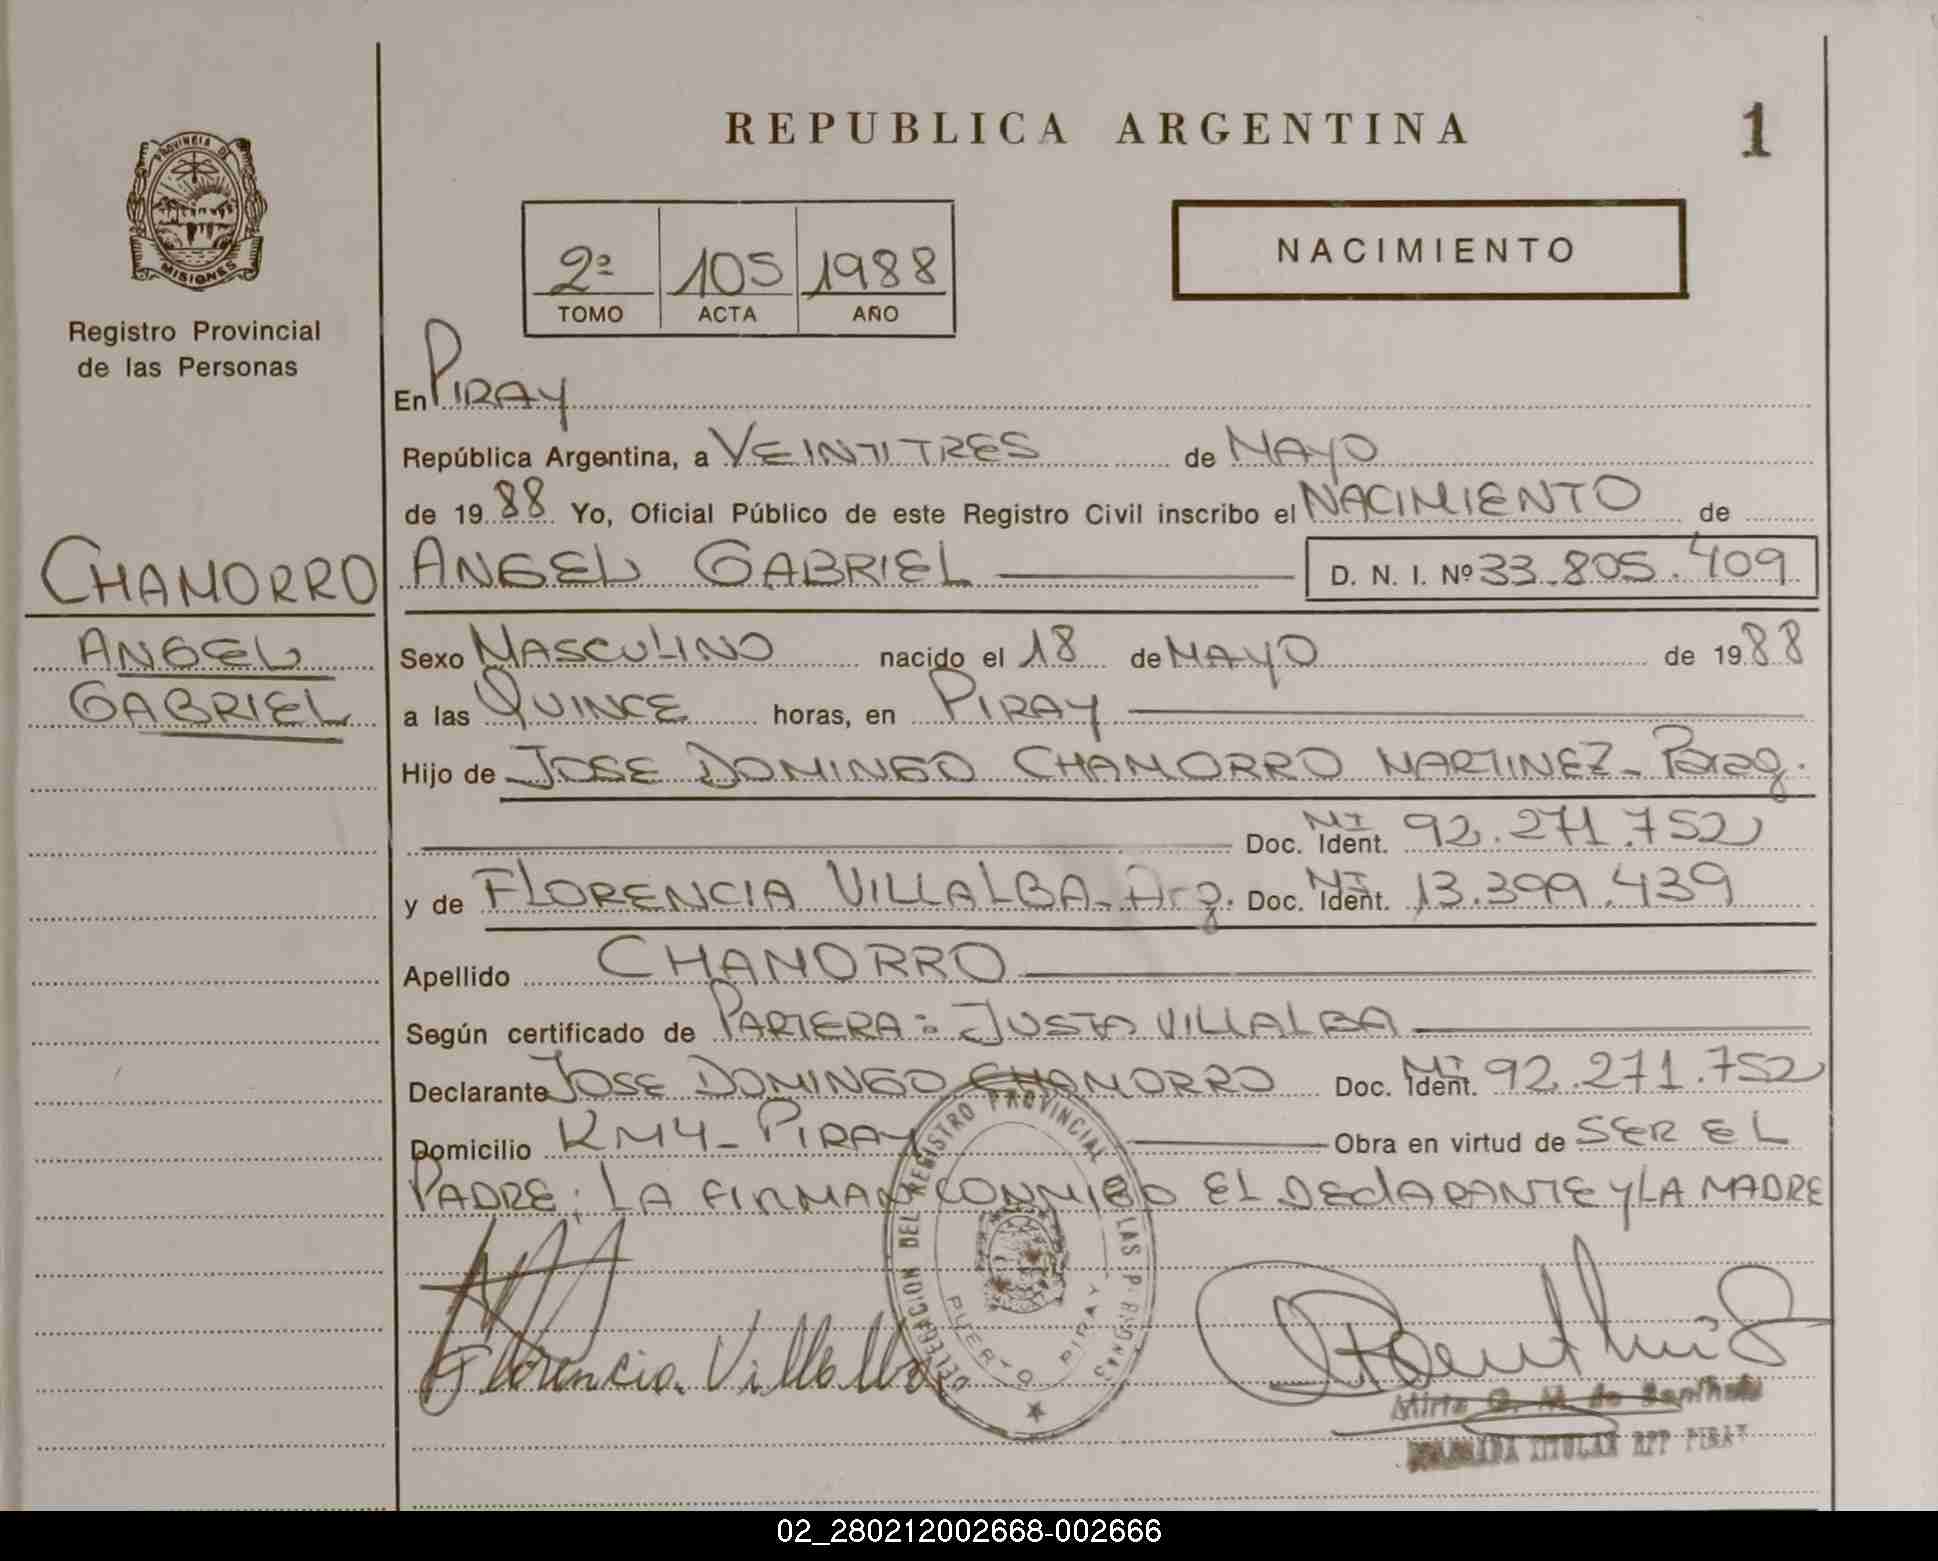 REPUBLICA ARGENTINA
1
PROVINCIA DE
MISIONES
Registro Provincial
de las Personas
2º 105 1988
TOMO ACTA AÑO
NACIMIENTO
En PIRAY
República Argentina, a VEINTITRES de MAYO
de 1988 Yo, Oficial Público de este Registro Civil inscribo el NACIMIENTO de
CHAMORRO
ANGEL
GABRIEL
ANGEL GABRIEL D. N. I. Nº 33.805.409
Sexo MASCULINO nacido el 18 de MAYO de 1988
a las QUINCE horas, en PIRAY
Hijo de JOSE DOMINGO CHAMORRO MARTINEZ - Parag.
Doc. Ident. MI 92.271.752
y de FLORENCIA VILLALBA - Arg. Doc. Ident. MI 13.399.439
Apellido CHAMORRO
Según certificado de PARTERA: JUSTA VILLALBA
Declarante JOSE DOMINGO CHAMORRO Doc. Ident. MI 92.271.752
Domicilio KM4 - PIRAY Obra en virtud de SER EL
PADRE; LA FIRMAN CONMIGO EL DECLARANTE Y LA MADRE
DELEGACION DEL REGISTRO PROVINCIAL DE LAS PERSONAS
PUERTO PIRAY
Florencia Villalba
Mirta G. M. de
TITULAR RPP PIRAY
02_280212002668-002666